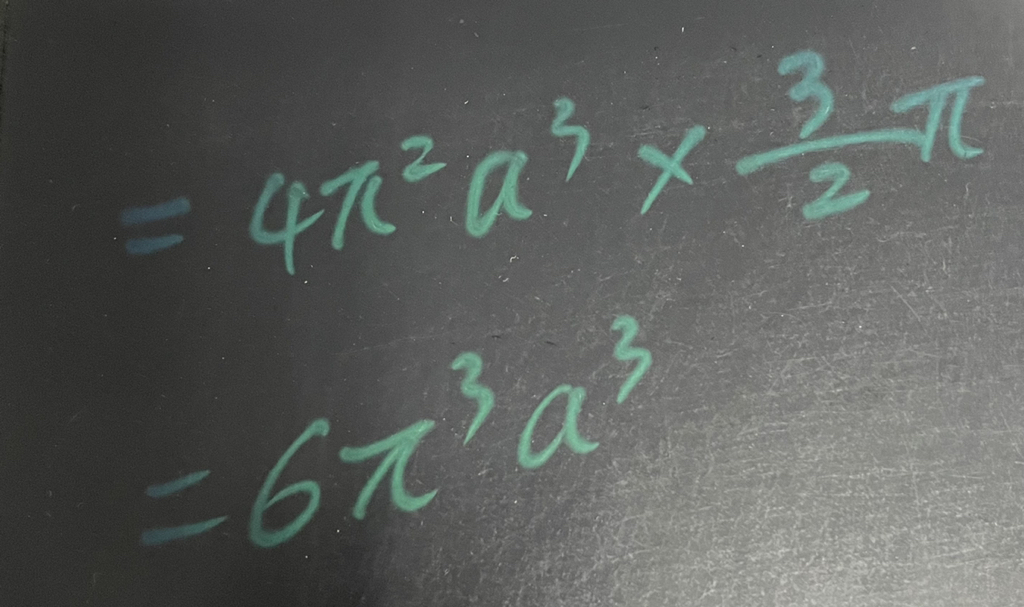 = 4π² a³ × 3/2 π
= 6π³ a³